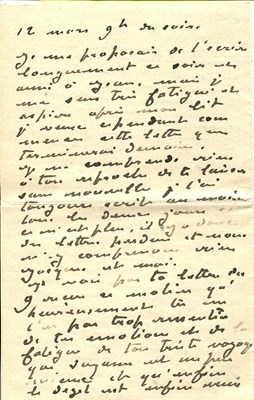 12 mars 9h du soir
Je me proposais de t'écrire
longuement ce soir
ainsi à Jean, mais je
me sens très fatigué et
aspire après mon lit
je veux cependant com
mencer cette lettre que
terminerai demain.
Je ne comprends rien
à ton reproche de te laisser
sans nouvelle je t'ai
toujours écrit au moins
tous les deux jours
ce n'est plus, il y a donc
des lettres perdues et nous
n'y comprenons rien
et moi.
Je vois par ta lettre du
9 reçue ce matin qu'
heureusement tu
n'as pas trop ressenti
de tes émotions et de la
fatigue de ton triste voyage
que Suzanne est un peu
et qu'enfin
le est enfin